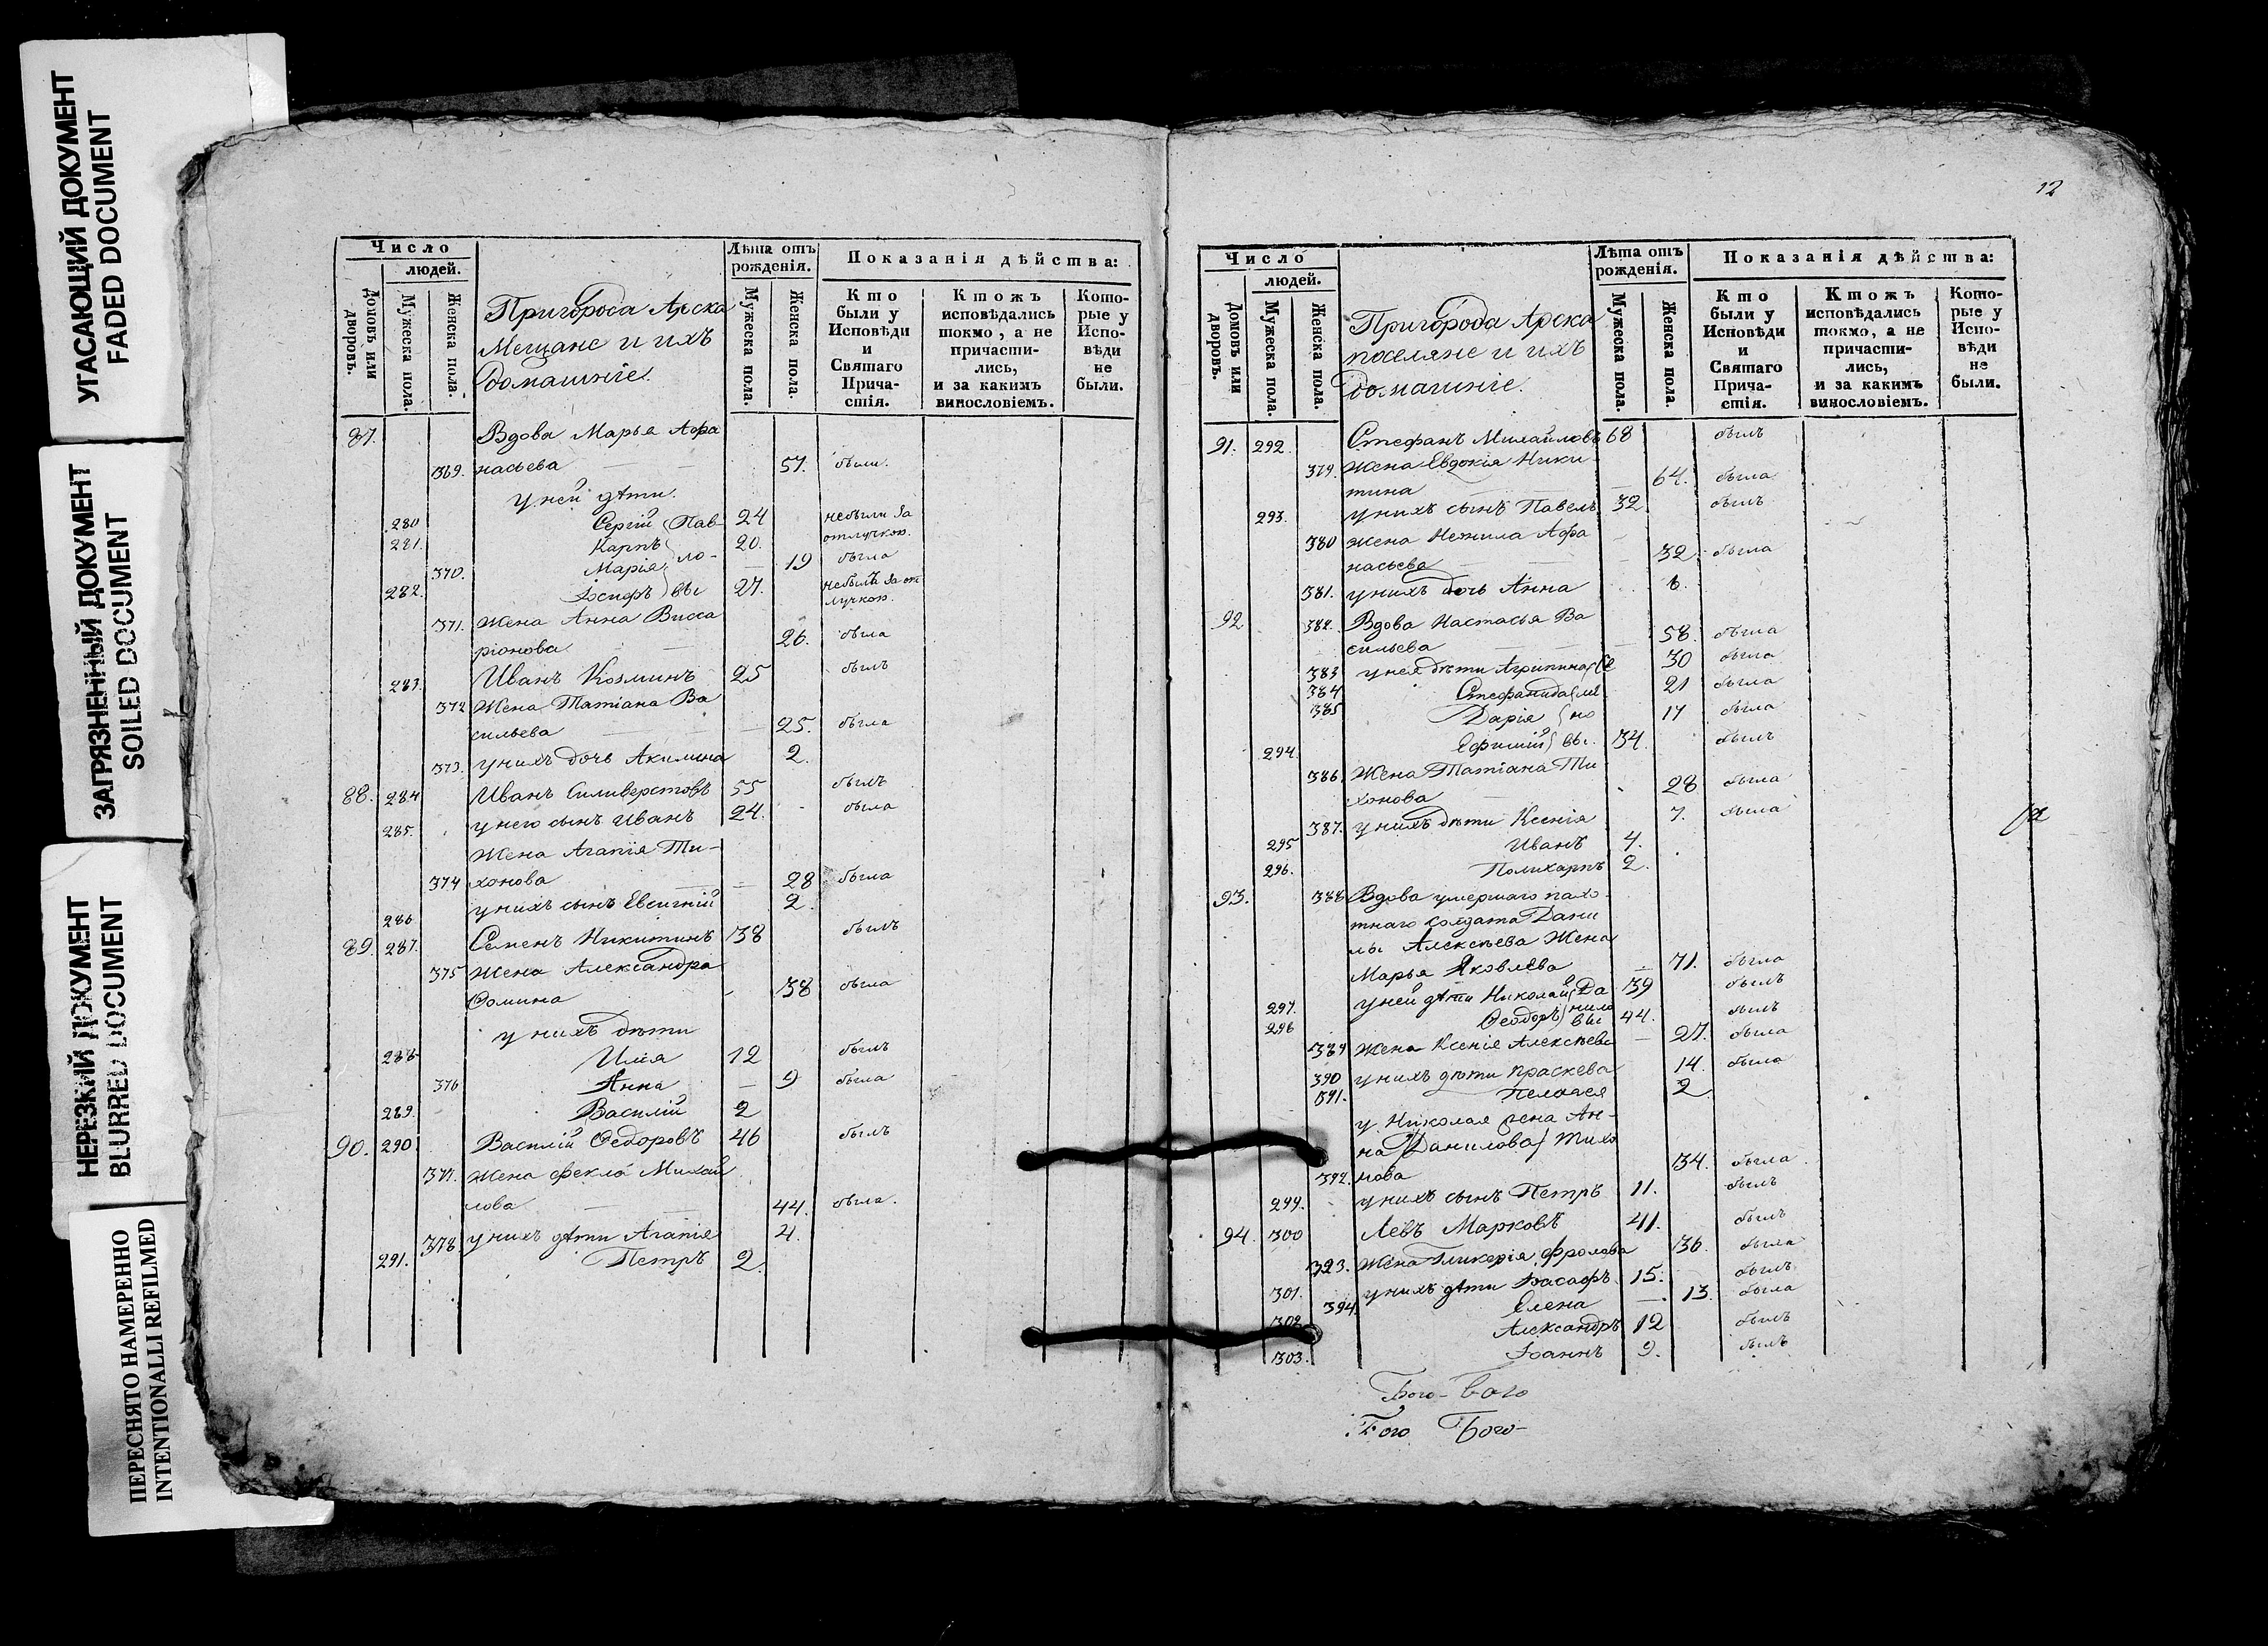 УГАСАЮЩИЙ ДОКУМЕНТ
FADED DOCUMENT
ЗАГРЯЗНЕННЫЙ ДОКУМЕНТ
SOILED DOCUMENT
НЕРЕЗКИЙ ДОКУМЕНТ
BLURRED DOCUMENT
ПЕРЕСНЯТО НАМЕРЕННО
INTENTIONALLI REFILMED
Число
людей.
Домовъ или дворовъ.
Мужеска пола.
Женска пола.
Пригорода Арска
Мещане и ихъ
домашніе.
Лѣта отъ рожденія.
Мужеска пола.
Женска пола.
Показанія дѣйства:
Кто были у Исповѣди и Святаго Причастія.
Ктожъ исповѣдались токмо, а не причастились, и за какимъ винословіемъ.
Которые у Исповѣди не были.
87. Вдова Марья Афа
369. насьева 57. были.
у ней дѣти.
280 Сергій Пав- 24 небыли за
281. Карпъ 20. отлучкою.
370. Марія ло- 19 была
282. Іосифъ вы 27. небылъ за от
лучкою.
371. Жена Анна Висса
ріонова 26. была
283. Иванъ Козминъ 25 былъ
372 Жена Татіана Ва
сильева 25. была
373. у нихъ дочь Акилина 2.
88. 284 Иванъ Силиверстовъ 55 былъ
285. у него сынъ Иванъ 24. была
Жена Агапія Ти-
374 хонова 28 была
286 у нихъ сынъ Евсигній 2.
89. 287. Семенъ Никитинъ 38 былъ
375 Жена Александра
Ѳомина 38 была
у нихъ дѣти
288 Илія 12 былъ
376 Анна 9 была
289. Василій 2
90. 290. Василій Ѳедоровъ 46 былъ
377. Жена Фекла Михай
лова 44. была.
378. у нихъ дѣти Агапія 4.
291. Петръ 2.
12
Число
людей.
Домовъ или дворовъ.
Мужеска пола.
Женска пола.
Пригорода Арска
поселяне и ихъ
домашніе.
Лѣта отъ рожденія.
Мужеска пола.
Женска пола.
Показанія дѣйства:
Кто были у Исповѣди и Святаго Причастія.
Ктожъ исповѣдались токмо, а не причастились, и за какимъ винословіемъ.
Которые у Исповѣди не были.
91. 292. Стефанъ Михайловъ 68 былъ
379. Жена Евдокія Ники
тина 64. была
293. у нихъ сынъ Павелъ 32 былъ
380 жена Неонила Афа
насьева 32. была
381. у нихъ дочь Анна 6.
92 382. Вдова Настасья Ва
сильева 58. была
383 у нея дѣти Агрипина Се 30 была
384 Стефанида ме 21 была
385 Дарія но 17 была
294 Ефимій вы. 34. былъ
386. Жена Татіана Ти
хонова 28 была
387. у нихъ дѣти Ксенія 7. была
295 Иванъ 4.
296. Поликарпъ 2.
93. 388 Вдова умершаго пахо-
тнаго солдата Дани
лы Алексѣева Жена
Марья Яковлева 71. была
297. у ней дѣти Николай Да 39 былъ
298 Ѳеодоръ нило вы 44. былъ
389 Жена Ксенія Алексѣева 27. была
390 у нихъ дѣти Праскева 14. была
391. Пелагея 2
у Николая жена Ан-
на Данилова Тихо
392. нова 34. была
299. у нихъ сынъ Петръ 11. былъ
94. 300 Левъ Марковъ 41. былъ
393. Жена Гликерія Фролова 36. была
301. у нихъ дѣти Іоасафъ 15. былъ
394. Елена 13. была
302 Александръ 12 былъ
303. Іоаннъ 9. былъ
Бого- Бого
Бого Бого-